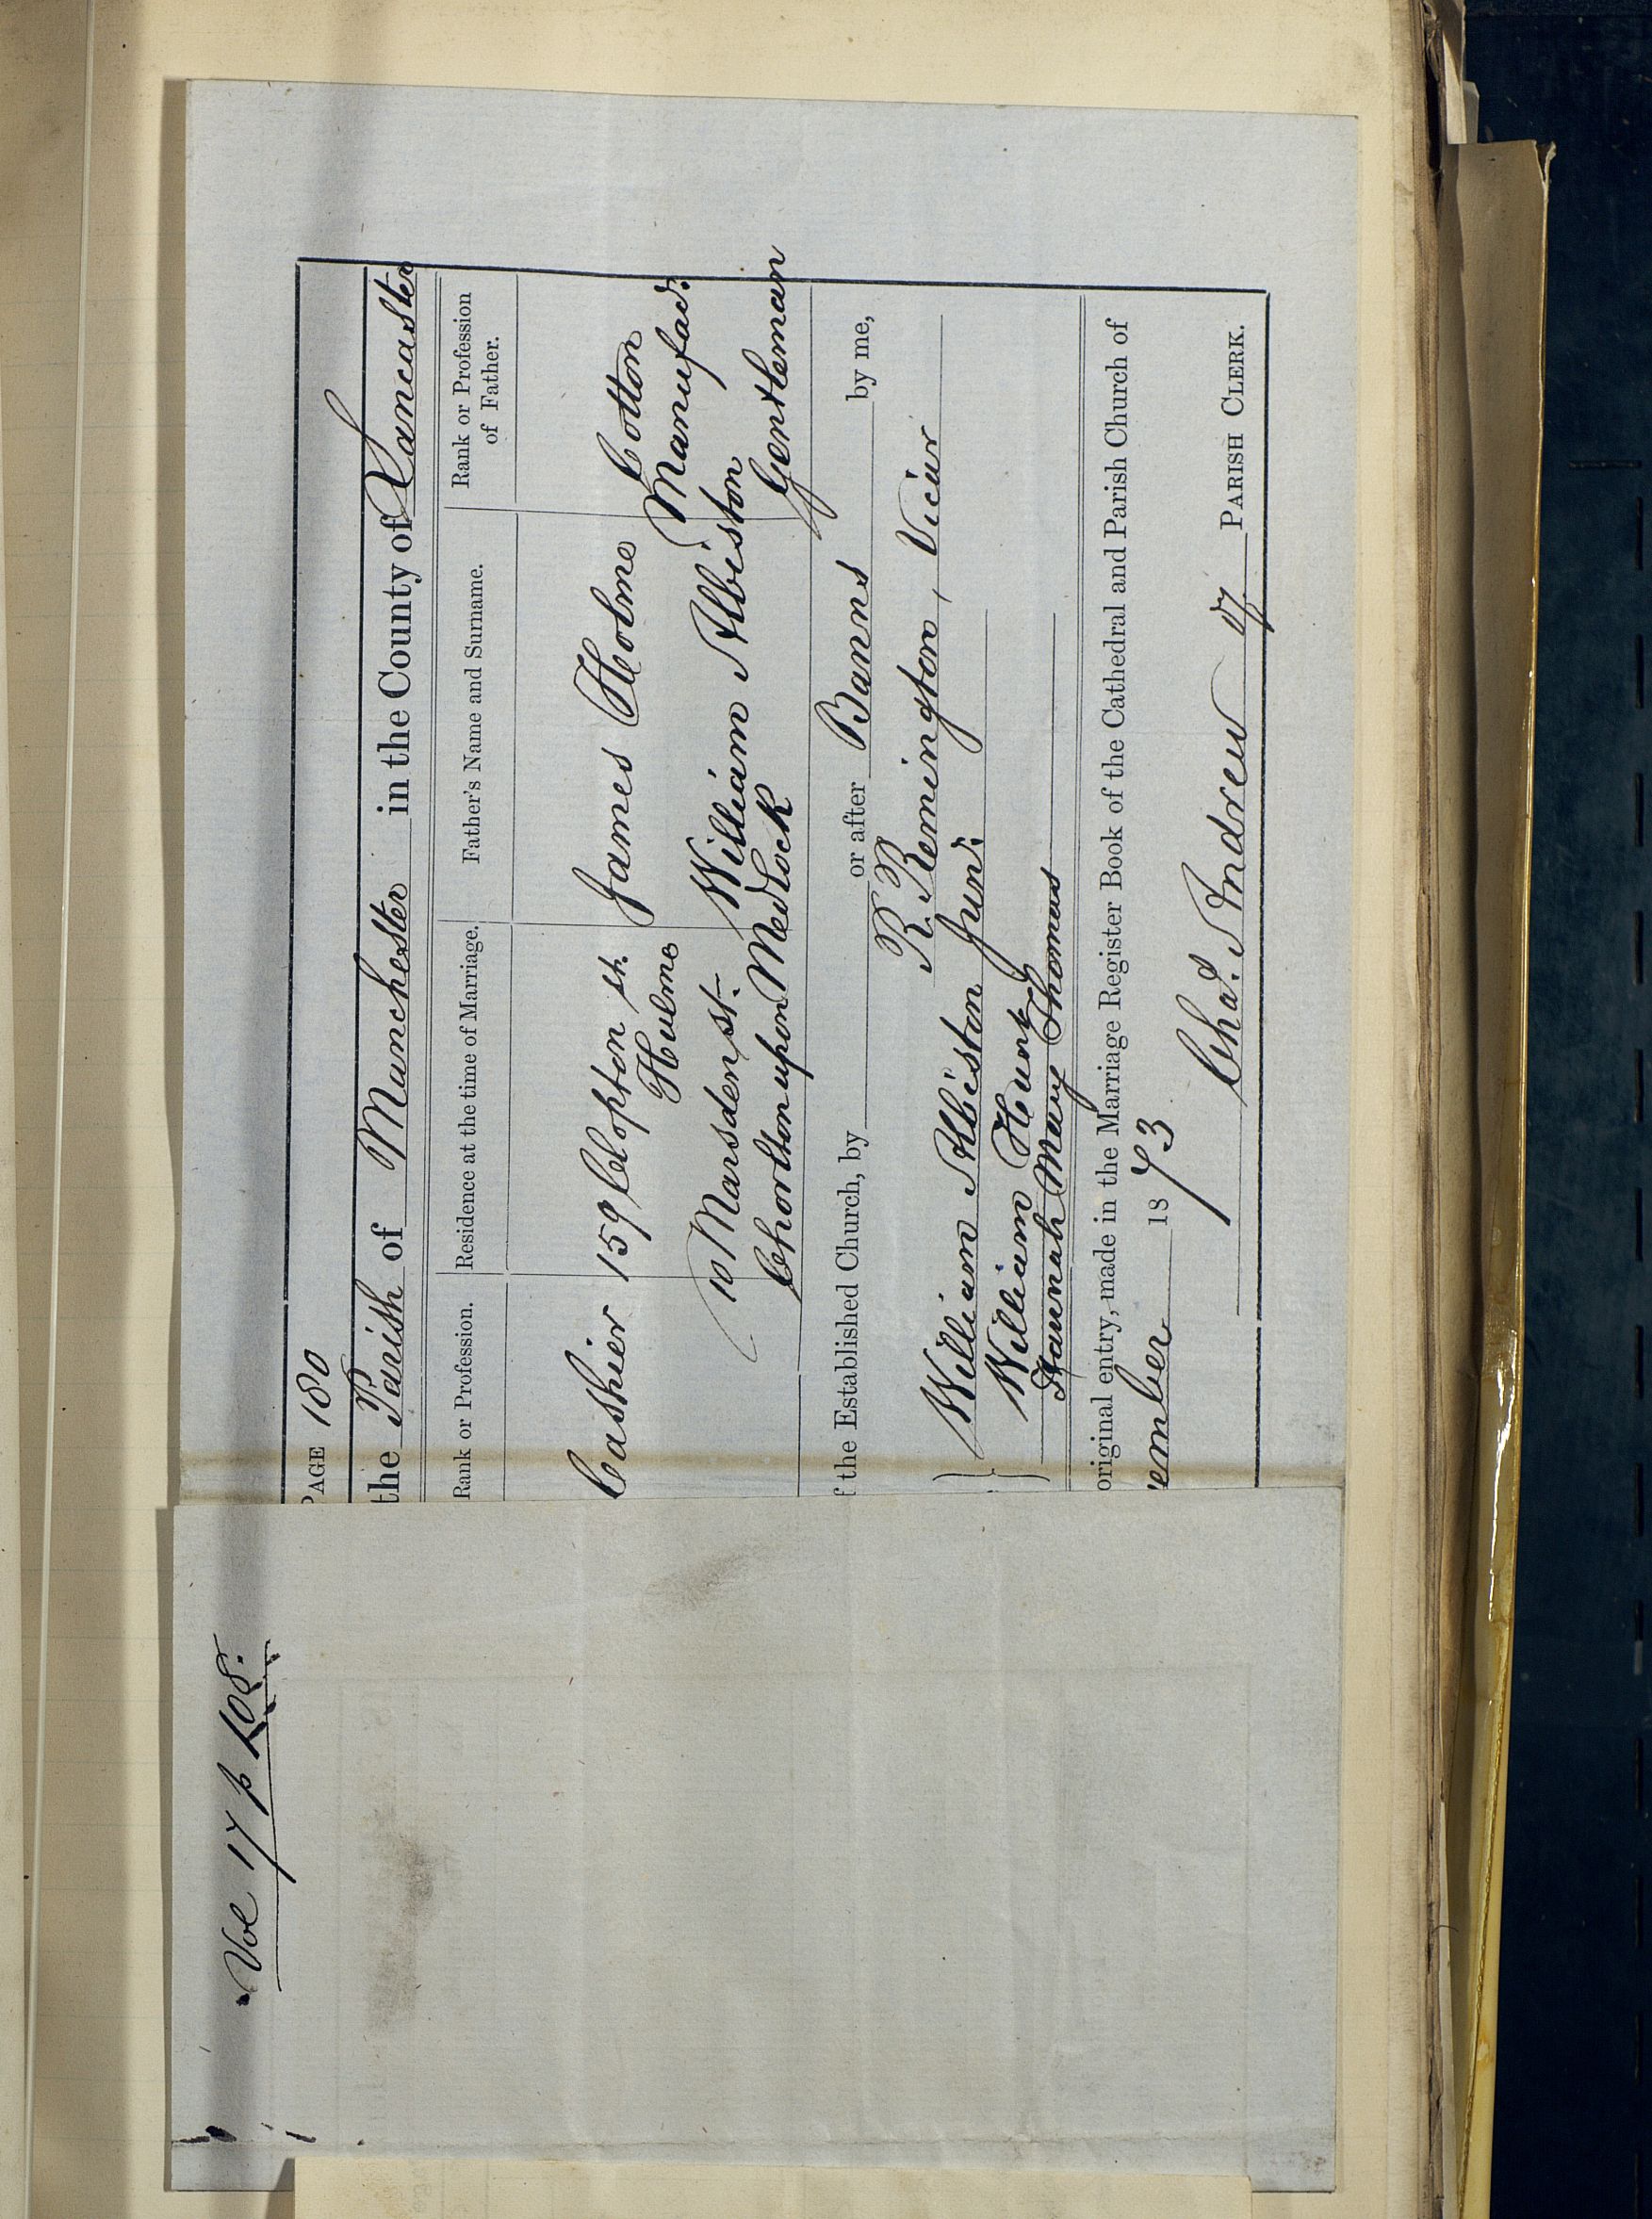 Vol 17 p 108.
PAGE 180
the Parish of Manchester in the County of Lancaster
Rank or Profession. Residence at the time of Marriage. Father's Name and Surname. Rank or Profession of Father.
Cashier 159 Clopton St. Hulme James Holme Cotton Manufacr.
10 Marsden St. Chorlton upon Medlock William Albiston Gentleman
f the Established Church, by or after Banns by me,
R. Remington, Vicar
William Albiston Junr.
William Hunt
Hannah Mary Thomas
original entry, made in the Marriage Register Book of the Cathedral and Parish Church of
ember 1873
Chas. Andrew PARISH CLERK.